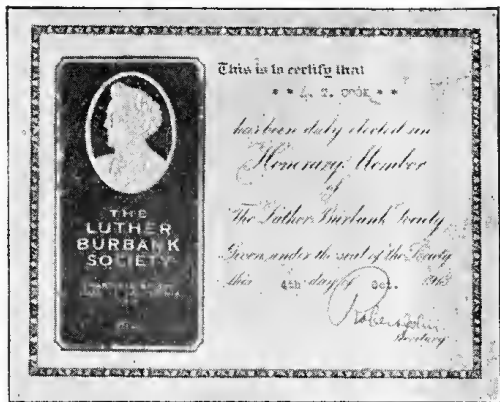 THE
LUTHER
BURBANK
SOCIETY
This is to certify that
* * COOK * *
has been duly elected an
Honorary Member
of
The Luther Burbank Society
Given under the seal of the Society
this 4th day of Oct.
Secretary